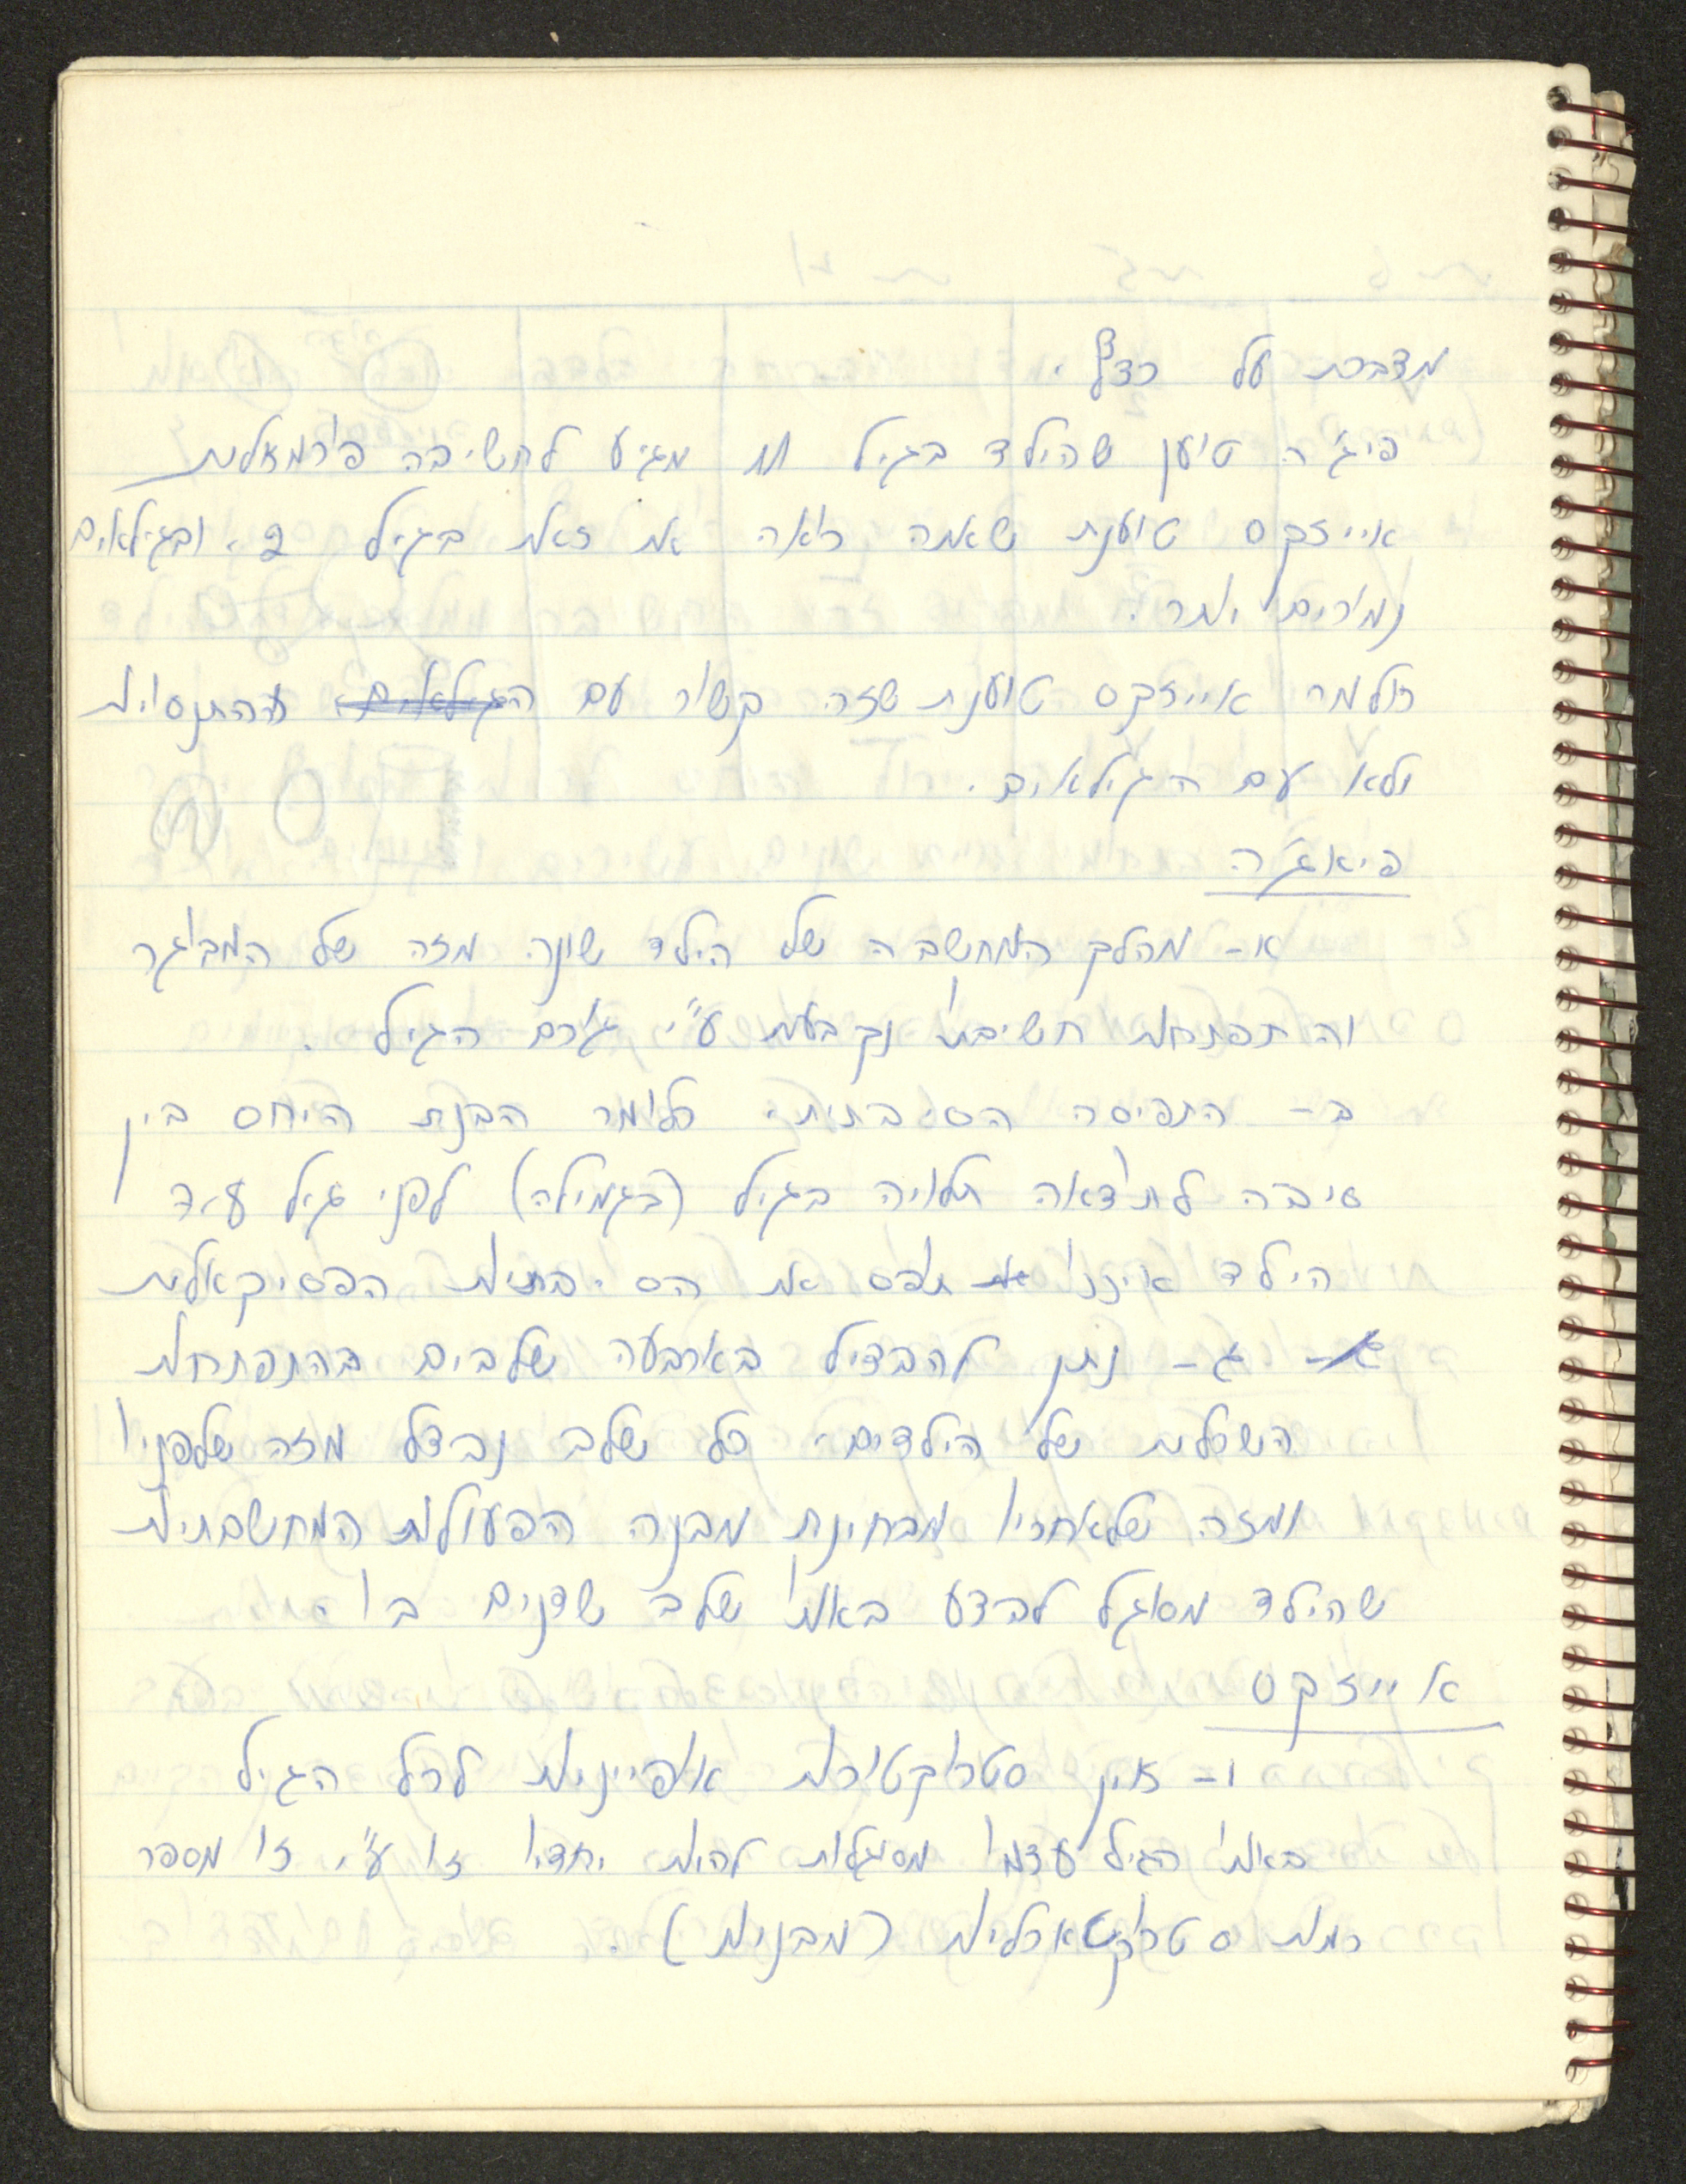 מדברת על רצף.
פיג'ה טוען שהילד בגיל 11 מגיע לחשיבה פורמאלית
אייזקס טוענת שאתה רואה את זאת בגיל 2. ובגילאים
נמוכים יותר.
כלומר אייזקס טוענת שזה קשור עם הגילאים. ההתנסויות
ולא עם הגילאים.
פיאג'ה
א - מהלך המחשבה של הילד שונה מזה של המבוגר
והתפתחות חשיבתו נקבעת ע"י גורם הגיל.
ב - התפיסה הסיבתית, כלומר הבנת היחס בין
סיבה לתוצאה תלויה בגיל (בגמילה) לפני גיל
הילד איננו תופס את הסיבתיות הפסיקאלית
ג - ניתן להבדיל בארבעה שלבים בהתפתחות
השכלית של הילדים, כל שלב נבדל מזה שלפניו
ומזה שלאחריו מבחינת מבנה הפעולות המחשבתיות
שהילד מסוגל לבצע באותו שלב שדנים בו.
אייזקס
1- אין סטרוקטורות אופייניות לכל הגיל
באותו הגיל עצמו מסוגלות להיות יחדיו זו ע"י זו מספר
רמות סטרוקטוארליות (מבניות).